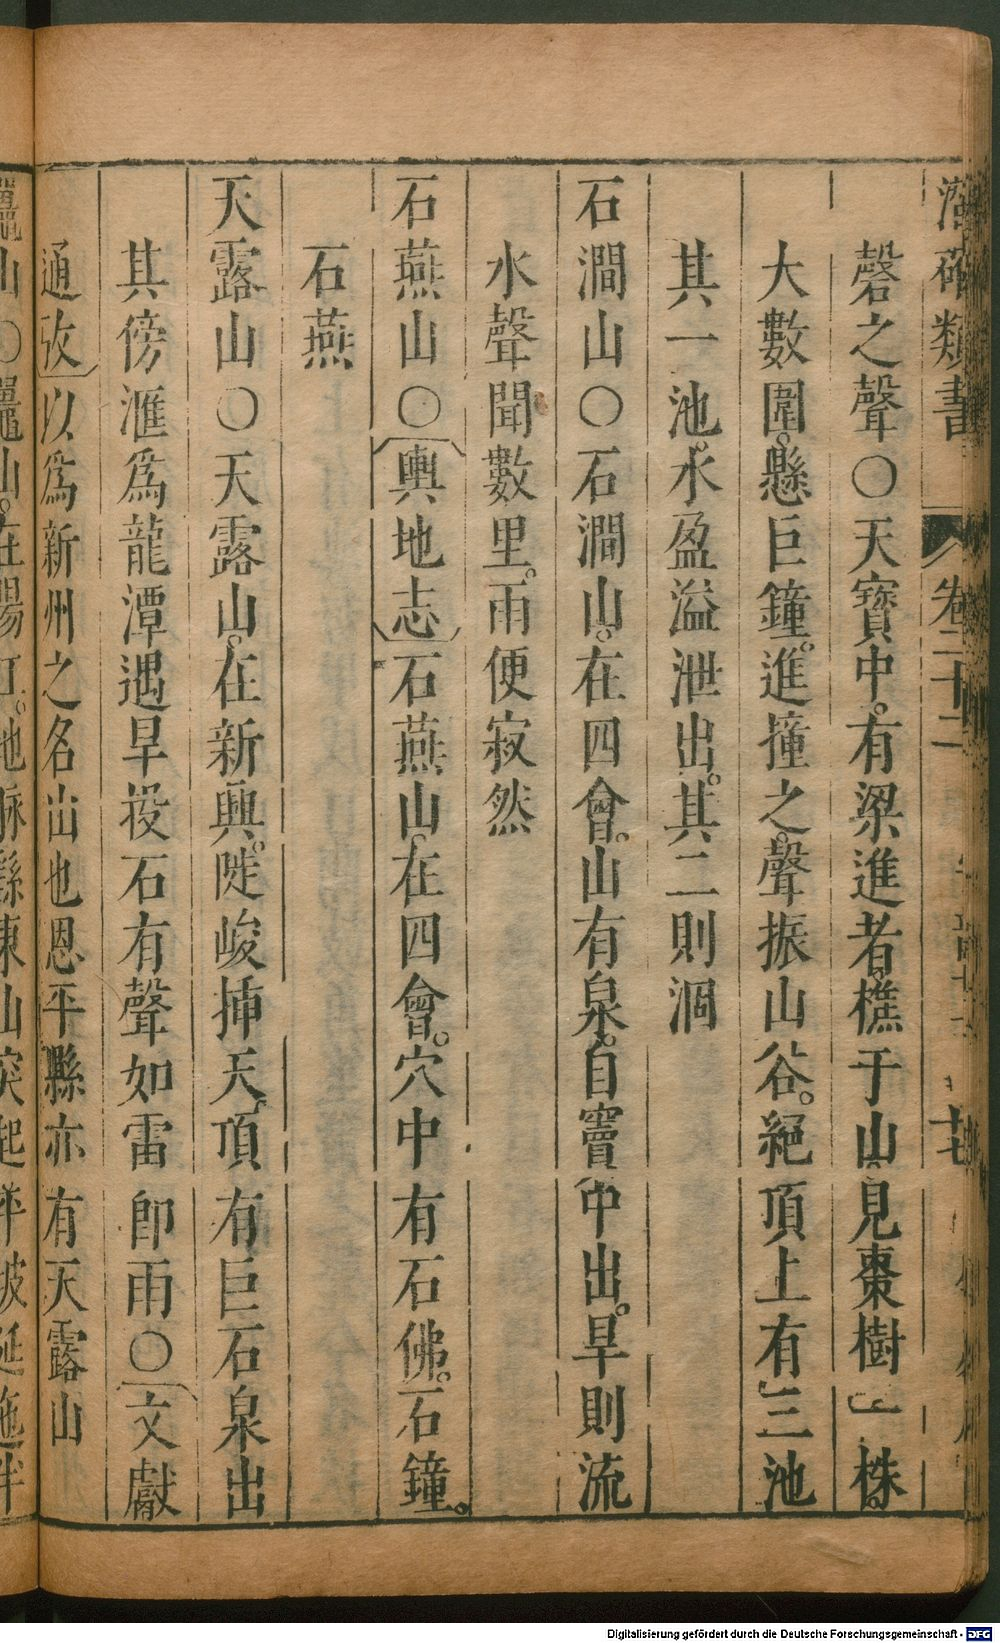 類書 卷二十二
磬之聲○天寶中。有梁進者。樵于山。見棗樹一株。
大數圍。懸巨鐘。進撞之。聲振山谷。絕頂上有三池
其一池。水盈溢泄出。其二則涸
石澗山○石澗山。在四會。山有泉。自竇中出。旱則流
水聲聞數里。雨便寂然
石燕山○輿地志石燕山。在四會。穴中有石佛。石鐘。
石燕
天露山○天露山。在新興。陡峻揷天。頂有巨石泉出
其傍滙爲龍潭遇旱投石有聲如雷卽雨○文獻
通攷以爲新州之名山也恩平縣亦有天露山
山○鼉山。在陽江。地脉縣東山突起
Digitalisierung gefördert durch die Deutsche Forschungsgemeinschaft - DFG